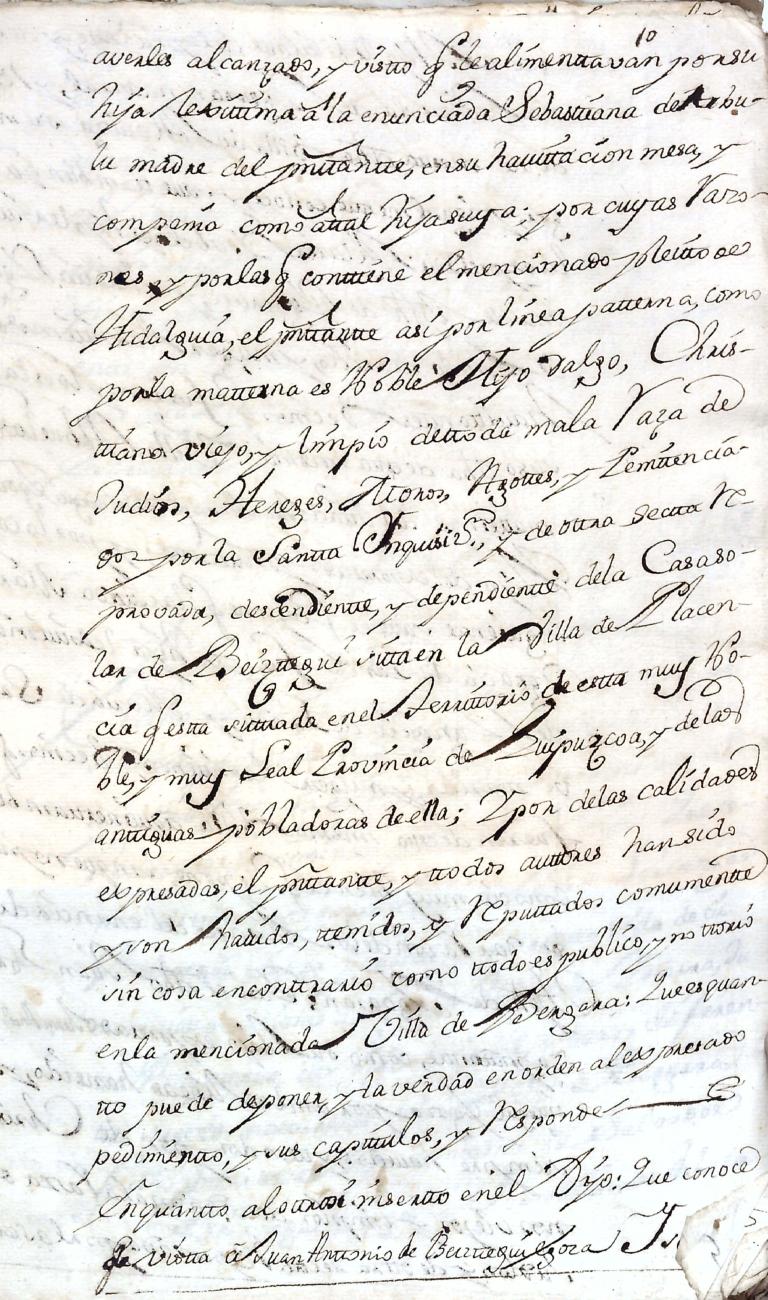 10
averles alcanzado, y visto q.e le alimenttavan por su
hija lexittima a la enunciada Sebasttiana de Arbu-
lu madre del pnttantte, en su havittacion mesa, y
compañia como a ttal hija suya; por cuyas Razo-
nes, y por las q.e conttiene el mencionado pleitto de
Hidalguia, el pnttantte asi por linea patterna, como
por la matterna es Noble Hijo dalgo, Chris-
ttiano viejo, y limpio de ttoda mala Raza de
Judios, Hereges, Moros, Agottes, y Penittencia-
dos por la Santta Inquisi.on, y de ottra Sectta Re-
provada, descendientte, y dependientte de la Casa so-
lar de Beizttegui sitta en la Villa de Placen-
cia q.e estta sittuada en el Territtorio de estta muy No-
ble, y muy Leal Provincia de Guipuzcoa, y de las
anttiguas pobladoras de ella; Y por de las calidades
expresadas, el pnttantte, y ttodos auttores han sido
y son havidos, ttenidos, y Reputtados comunmentte
sin cosa en conttrario como ttodo es publico, y nottorio
en la mencionada Villa de Bergara: Que es quan-
tto puede deponer, y la verdad en orden al expresado
pedimientto, y sus capittulos, y Responde
En quantto al ottrosi insertto en el Dijo: Que conoce
de vistta a Juan Anttonio de Beizttegui Egoza